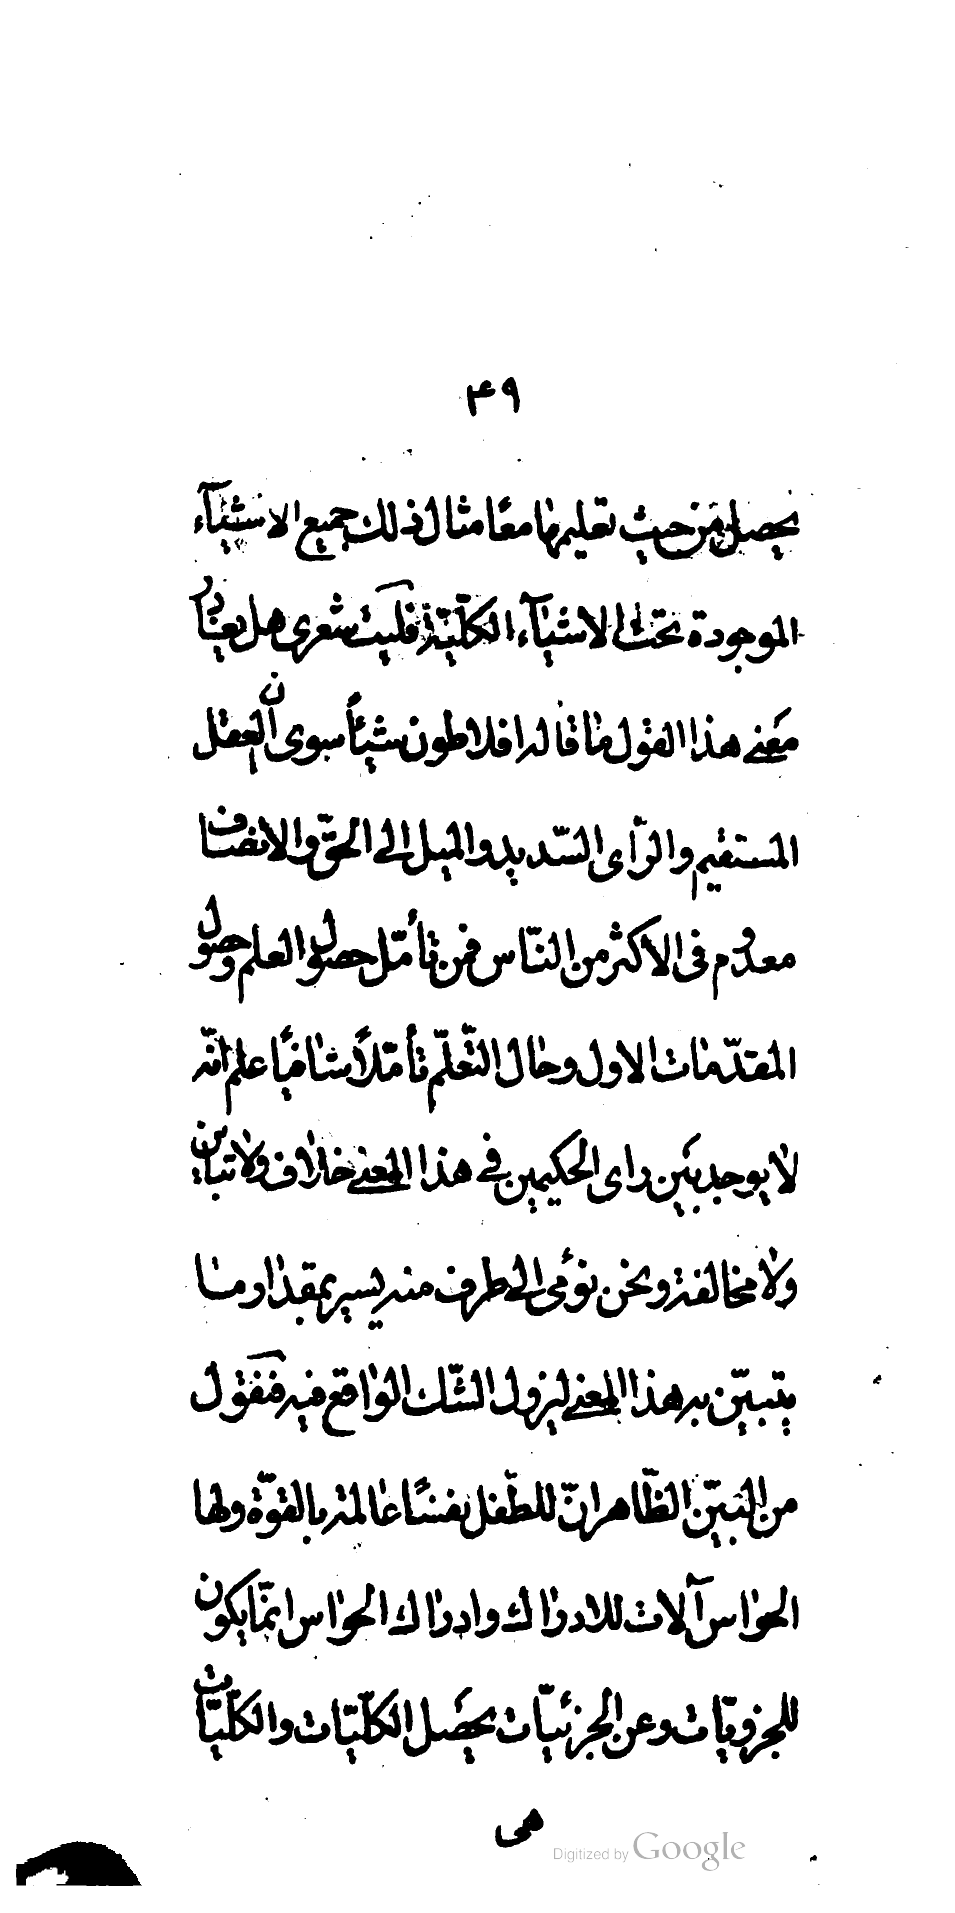 ۴۹
يحصل من حيث تعليمها معًا مثال ذلك جميع الاشيآء
الموجودة تحت الاشيآء الكلّيّة فليت شعرى هل يغادر
معنى هذا القول ما قاله افلاطون شيئاً سوى ان العقل
المستقيم والرّأى السّديد والميل الى الحقّ والانصاف
معدوم فى الاكثر من النّاس فمن تأمّل حصول العلم وحصول
المقدّمات الاول وحال التّعلّم تأمّلاً شافيًا علم انّه
لا يوجد بين راى الحكيمين فى هذا المعنى خلاف ولا تباين
ولا مخالفة ونحن نؤمى الى طرف منه يسير بمقدار ما
يتبيّن به هذا المعنى ليزول الشّك الواقع فيه فنقول
من البيّن الظّاهر انّ للطّفل نفسًا عالمة بالقوّة ولها
الحواس آلات للادراك وادراك الحواس انمّا يكون
للجزويّات وعن الجزئيّات يحصل الكلّيّات والكلّيّات
هى
Digitized by Google